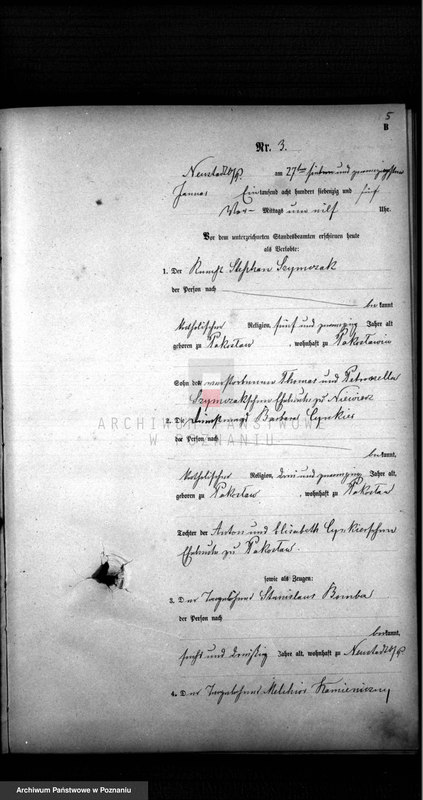 5
B
Nr. 3.
Neustadt a/W. am 27ten sieben und zwanzigsten
Januar Eintausend acht hundert siebenzig und fünf
Vor- Mittags um elf Uhr.
Vor dem unterzeichneten Standesbeamten erschienen heute
als Verlobte:
1. Der Knecht Stephan Szymczak
der Person nach
bekannt
katholischer Religion, fünf und zwanzig Jahre alt
geboren zu, wohnhaft zu
Sohn des verstorbenen Thomas und Petronella
Szymczakschen Eheleute zu
2. Die Dienstmagd Barbara
der Person nach
bekannt,
katholischer Religion, drei und zwanzig Jahre alt,
geboren zu, wohnhaft zu
Tochter der Anton und Elisabeth
Eheleute zu
sowie als Zeugen:
3. Der Tagelöhner Stanislaus Bomba
der Person nach
bekannt,
sechs und dreißig Jahre alt, wohnhaft zu Neustadt a/W
4. Der Tagelöhner Melchior
ARCHIWUM PAŃSTWOWE
W POZNANIU
Archiwum Państwowe w Poznaniu